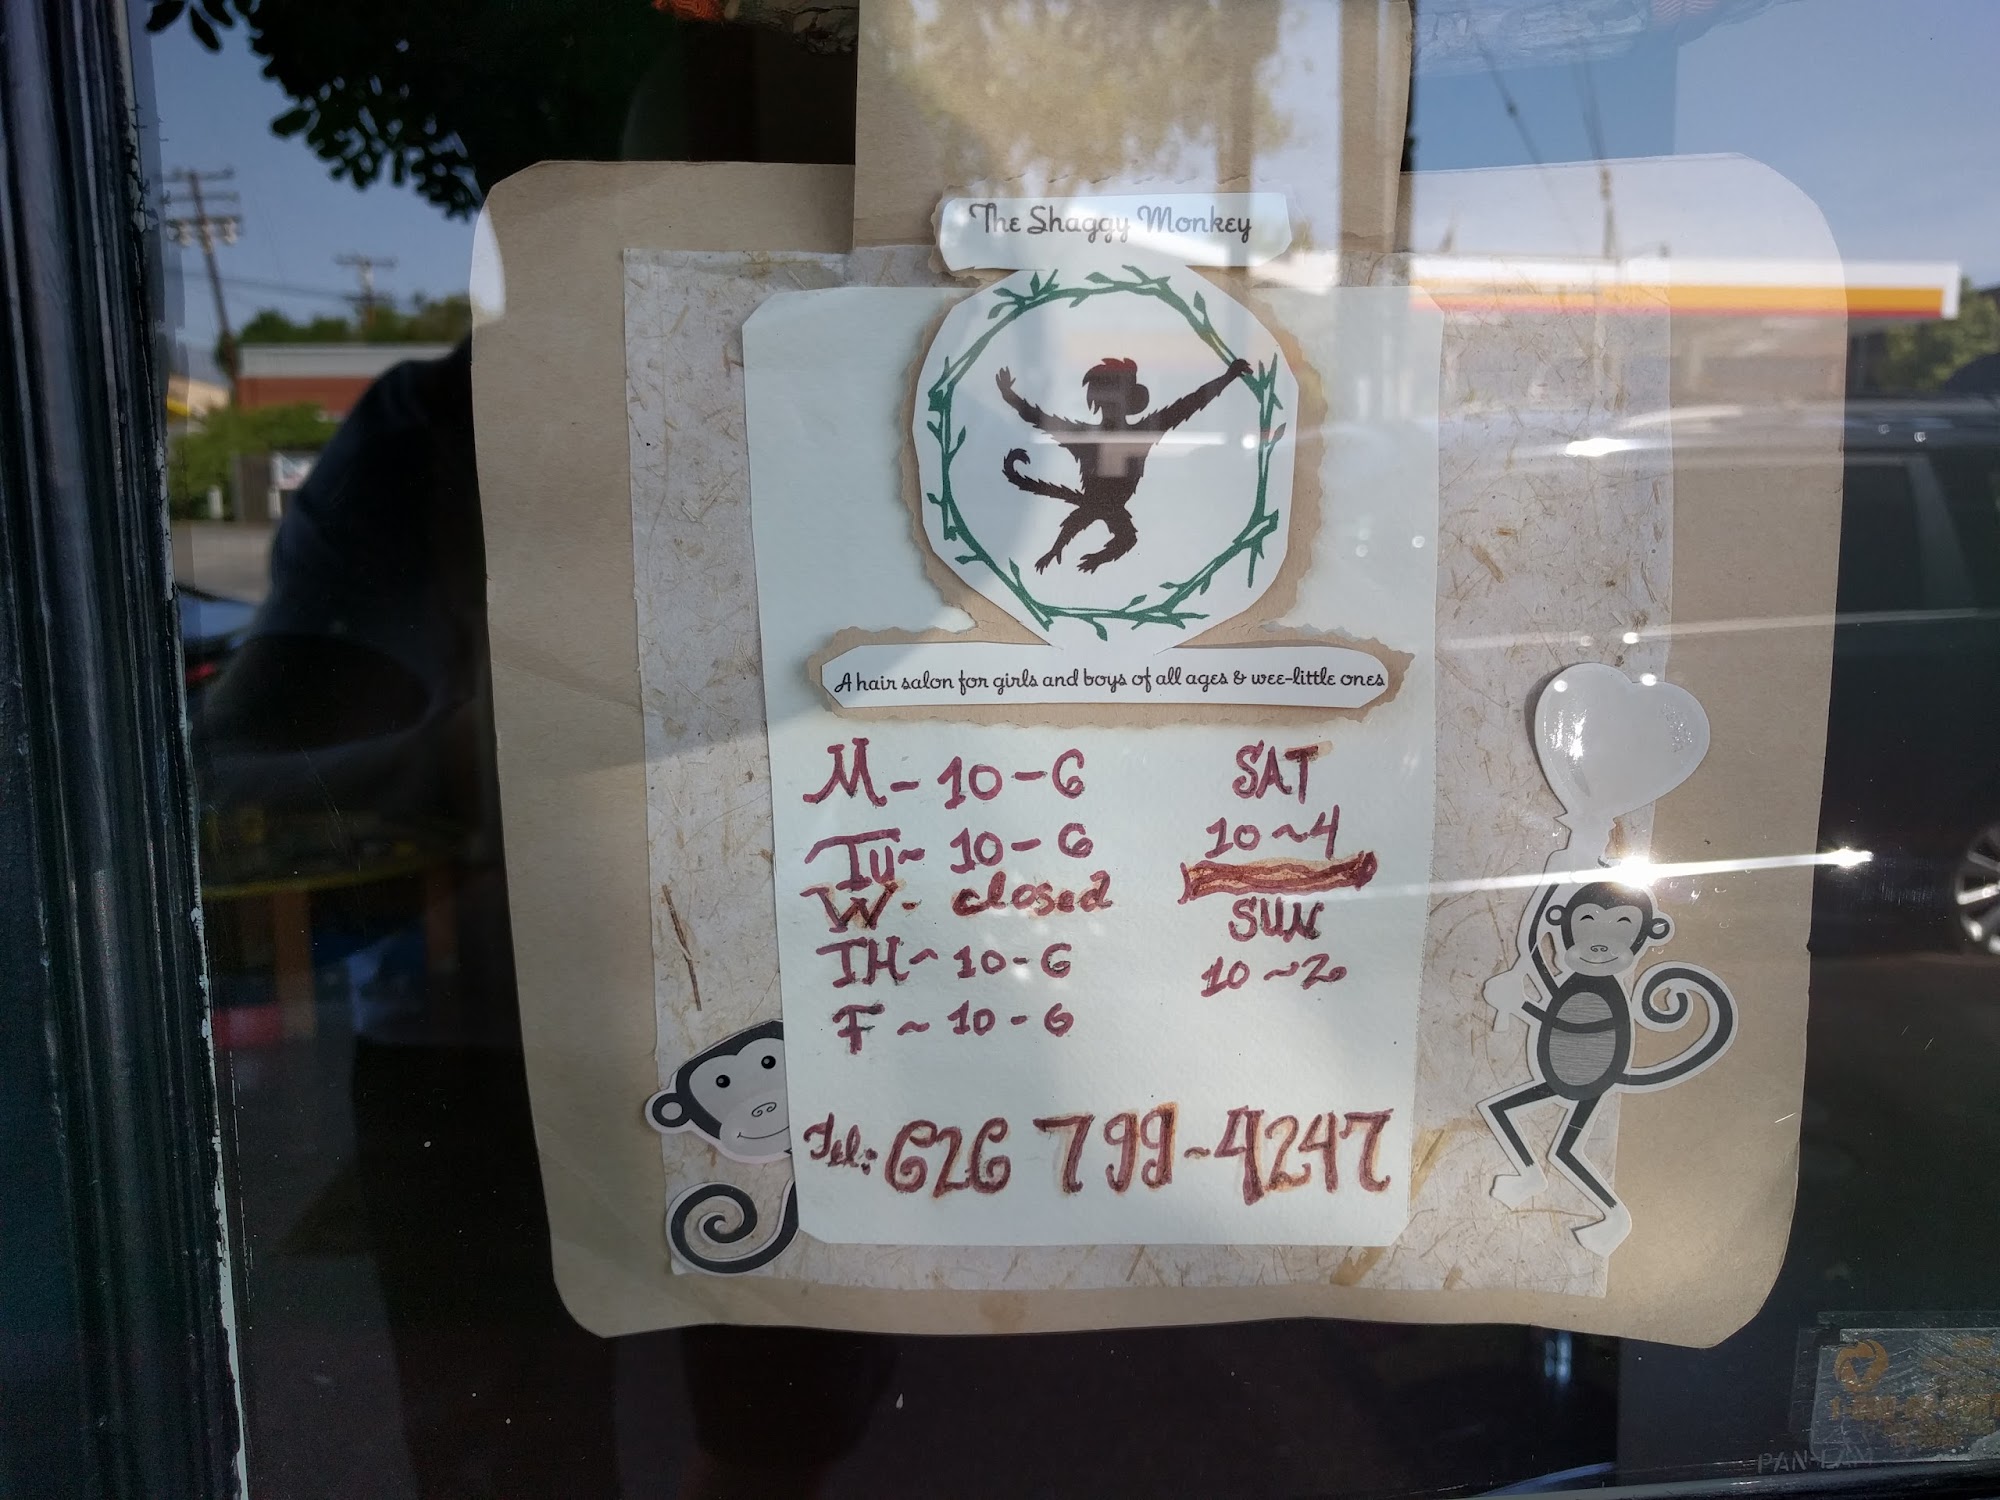 The Shaggy Monkey
A hair salon for girls and boys of all ages & wee-little ones
M - 10 - 6
Tu ~ 10 - 6
W - closed
TH ~ 10 - 6
F ~ 10 - 6
SAT
10 ~ 4
SUN
10 ~ 2
Tel: 626 799-4247
PAN-LAM